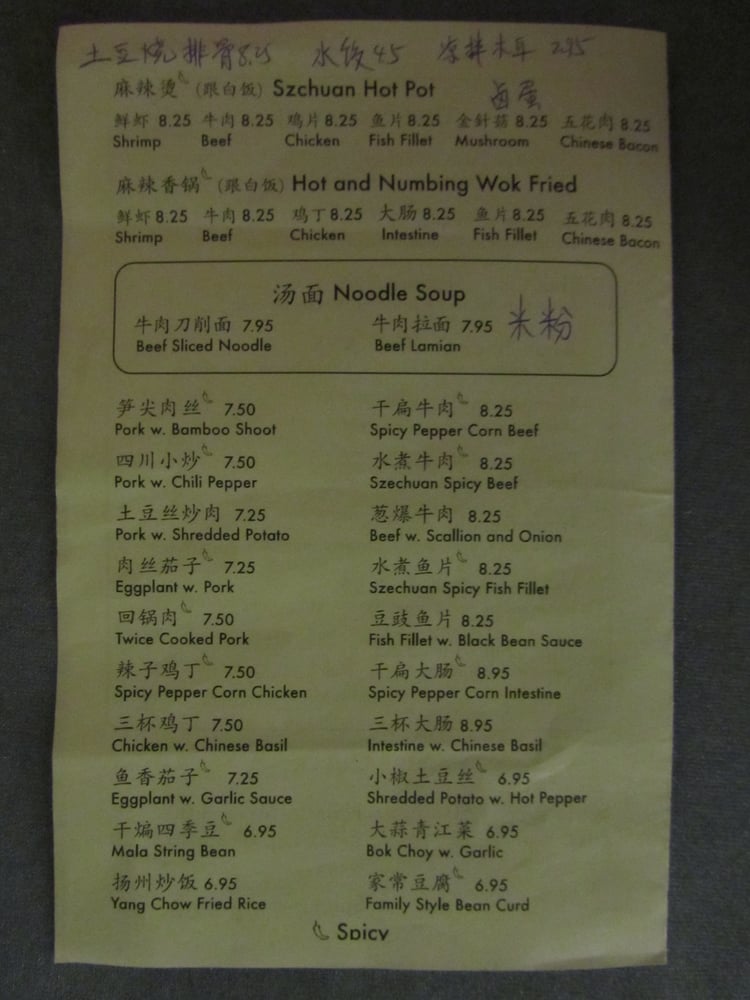 土豆烧排骨8.25 水饺45 凉拌木耳 7.95
麻辣烫 (跟白饭) Szchuan Hot Pot 卤蛋
鲜虾 8.25 牛肉 8.25 鸡片 8.25 鱼片 8.25 金針菇 8.25 五花肉 8.25
Shrimp Beef Chicken Fish Fillet Mushroom Chinese Bacon
麻辣香锅 (跟白饭) Hot and Numbing Wok Fried
鲜虾 8.25 牛肉 8.25 鸡丁 8.25 大肠 8.25 鱼片 8.25 五花肉 8.25
Shrimp Beef Chicken Intestine Fish Fillet Chinese Bacon
汤面 Noodle Soup
牛肉刀削面 7.95 牛肉拉面 7.95 米粉
Beef Sliced Noodle Beef Lamian
笋尖肉丝 7.50 干扁牛肉 8.25
Pork w. Bamboo Shoot Spicy Pepper Corn Beef
四川小炒 7.50 水煮牛肉 8.25
Pork w. Chili Pepper Szechuan Spicy Beef
土豆丝炒肉 7.25 葱爆牛肉 8.25
Pork w. Shredded Potato Beef w. Scallion and Onion
肉丝茄子 7.25 水煮鱼片 8.25
Eggplant w. Pork Szechuan Spicy Fish Fillet
回锅肉 7.50 豆豉鱼片 8.25
Twice Cooked Pork Fish Fillet w. Black Bean Sauce
辣子鸡丁 7.50 干扁大肠 8.95
Spicy Pepper Corn Chicken Spicy Pepper Corn Intestine
三杯鸡丁 7.50 三杯大肠 8.95
Chicken w. Chinese Basil Intestine w. Chinese Basil
鱼香茄子 7.25 小椒土豆丝 6.95
Eggplant w. Garlic Sauce Shredded Potato w. Hot Pepper
干煸四季豆 6.95 大蒜青江菜 6.95
Mala String Bean Bok Choy w. Garlic
扬州炒饭 6.95 家常豆腐 6.95
Yang Chow Fried Rice Family Style Bean Curd
Spicy